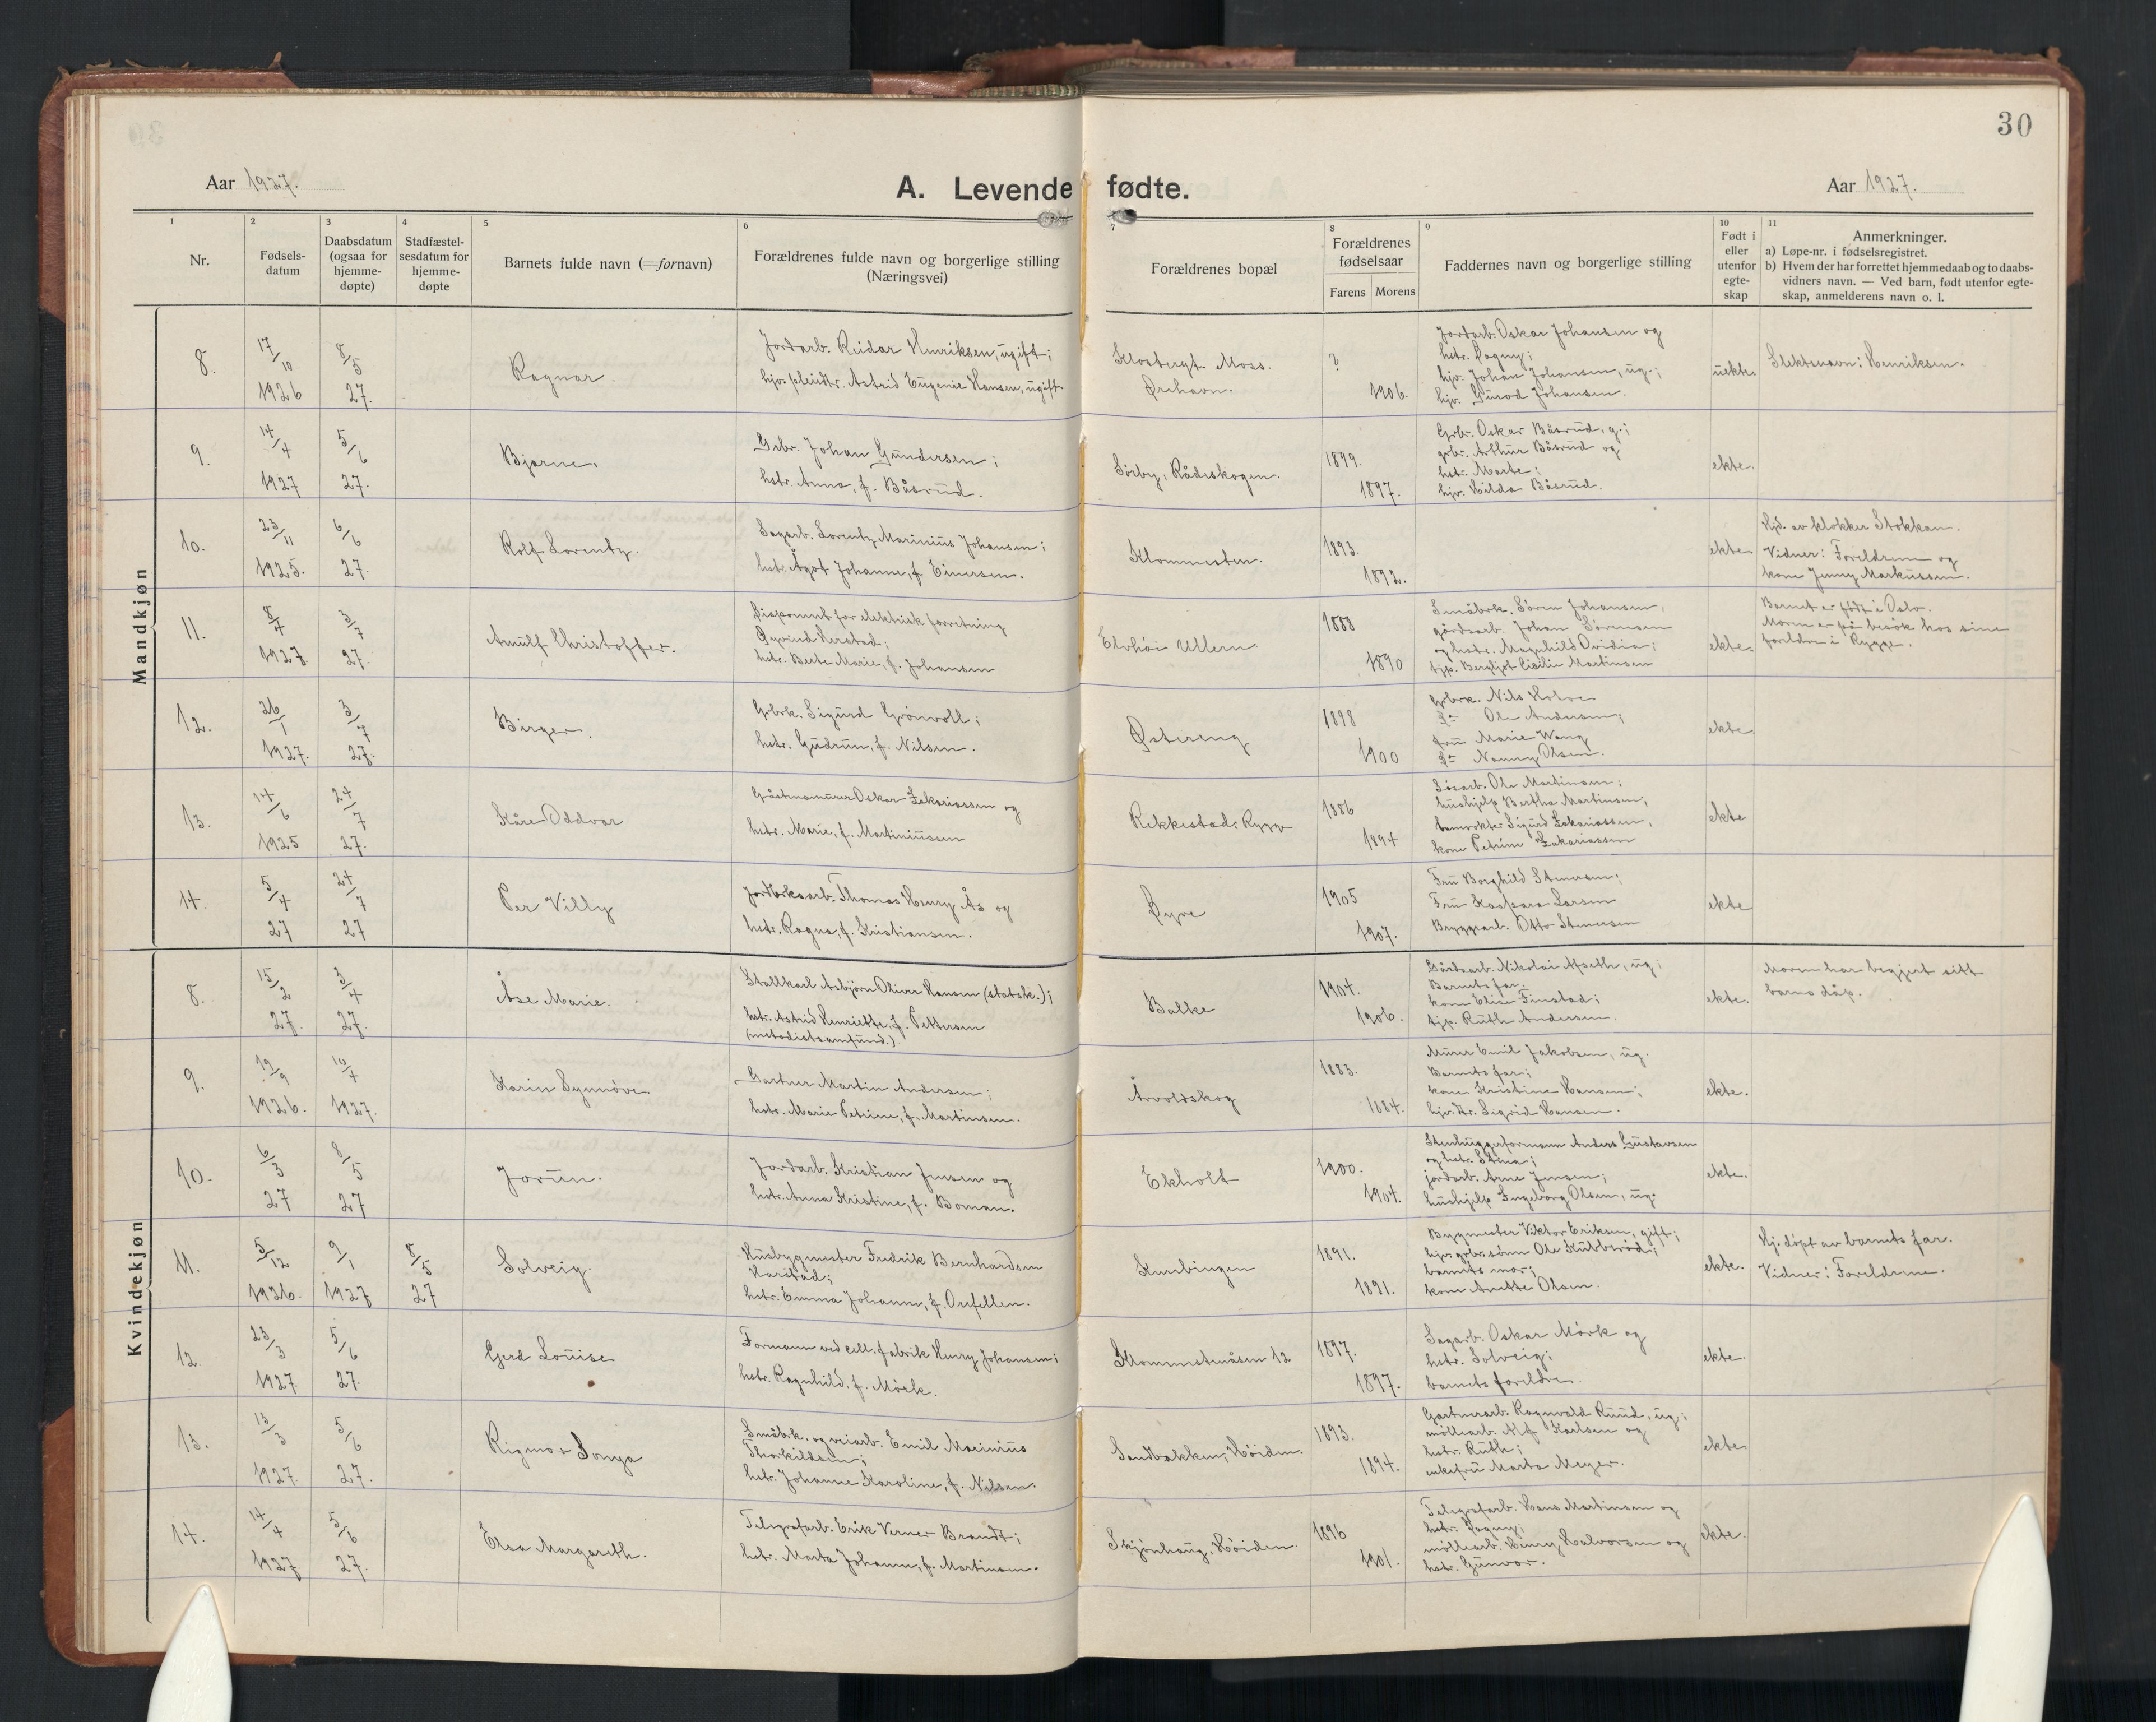 30
Aar 1927.
A. Levende fødte.
Aar 1927.
1 2 3 4 5 6 7 8 9 10 11
Nr.
Fødsels-
datum
Daabsdatum
(ogsaa for
hjemme-
døpte)
Stadfæstel-
sesdatum for
hjemme-
døpte
Barnets fulde navn (=fornavn)
Forældrenes fulde navn og borgerlige stilling
(Næringsvei)
Forældrenes bopæl
Forældrenes
fødselsaar
Farens Morens
Faddernes navn og borgerlige stilling
Født i
eller
utenfor
egte-
skap
Anmerkninger.
a) Løpe-nr. i fødselsregistret.
b) Hvem der har forrettet hjemmedaab og to daabs-
vidners navn. — Ved barn, født utenfor egte-
skap, anmelderens navn o. l.
Mandkjøn
8.
17/10
1926
8/5
27.
Ragnar.
Jordarb. Reidar Henriksen, ugift;
Astrid Eugenie Hansen, ugift.
Moss.
?
1906.
Jordarb. Oskar Johansen og
hstr. Dagny;
hjv. Johan Johansen, ug.;
hjv. Gurod Johansen.
uekte.
Slektsnavn: Henriksen.
9.
14/4
1927
5/6
27.
Bjarne.
Grbr. Johan Gundersen;
hstr. Anna, f. Båsrud.
Sørby, Rådeskogen.
1899.
1897.
Grbr. Oskar Båsrud, g.;
grbr. Arthur Båsrud og
hstr. Marte;
hjv. Hilda Båsrud.
ekte.
10.
23/11
1925.
6/6
27.
Rolf Lorentz.
Sagarb. Lorentz Marinius Johansen;
hstr. Ågot Johanne, f. Einersen.
Klommesten.
1893.
1892.
ekte.
Hjd. av klokker Stokkan.
Vidner: Foreldrene og
kone Jenny Markussen.
11.
8/4
1927.
3/7
27.
Arnulf Christoffer.
Disponent for elektrisk forretning
Øyvind Herstad;
hstr. Berte Marie, f. Johansen
Elvhøi Ullern
1888
1890
Småbrk. Søren Johansen,
gårdsarb. Johan Sørensen
og hstr. Magnhild Ovidia;
tjp. Bergljot Cecilie Martinsen
ekte.
Barnet er født i Oslo.
Moren er på besøk hos sine
foreldre i Rygge.
12.
26/1
1927.
3/7
27.
Birger.
Grbrk. Sigurd Grönvoll;
hstr. Gudrun, f. Nilsen.
Østereng
1898
1900
Grbrk. Nils Holve
do Ole Andersen;
fru Marie Wang
do Nanny Olsen.
ekte
13.
14/6
1925
24/7
27.
Kåre Oddvar
Oskar Zakariassen og
hstr. Marie, f. Martiniussen
Rikkestad, Rygge
1886
1894
Ole Martinsen;
hushjelp Bertha Martinsen,
Sigurd Zakariassen,
kone Petrine Zakariassen
ekte
14.
5/4
27
24/7
27
Per Villy
Thomas Henry Ås og
hstr. Ragna, f. Kristiansen.
Øyre
1905
1907.
Fru Borghild Stenersen;
Fru Kaspara Larsen
Bryggearb. Otto Stenersen
ekte
Kvindekjøn
8.
15/2
27.
3/4
27.
Åse Marie.
Stallkarl Asbjørn Oliver Hansen (statsk.);
hstr. Astrid Henriette, f. Pettersen
(metodistsamfund.)
Balke
1904.
1906.
Gårdsarb. Nikolai Apseth, ug;
Barnets far.
kone Elise Finstad;
tjp. Ruth Andersen.
ekte.
Moren har begjert sitt
barns dåp.
9.
19/9
1926.
10/4
1927.
Karin Synnöve
Gartner Martin Andersen;
hstr. Marie Petrine, f. Martinsen.
Årvoldskog
1883.
1884.
Murer Emil Jakobsen, ug.
Barnets far;
kone Kristine Hansen;
hjv. dtr. Sigrid Hansen.
ekte.
10.
6/3
27
8/5
27
Jorun.
Jordarb. Kristian Jensen og
hstr. Anna Kristine, f. Boman.
Ekholt
1900.
1904.
Stenhuggerformann Anders Gustavsen
og hstr. Stina;
jordarb. Arne Jensen;
hushjelp Ingeborg Olsen, ug.
ekte.
11.
5/12
1926.
9/1
1927
8/5
27
Solveig.
Husbygmester Fredrik Bernhardsen
Karstad;
hstr. Emma Johanne, f. Orefellen.
Kurbingen
1891.
1891.
Bygmester Viktor Eriksen, gift;
hjv. grbr. sønn Ole Kubberød;
barnets mor;
kone Anette Olsen.
ekte.
Hj. døpt av barnets far.
Vidner: Foreldrene.
12.
23/3
1927.
5/6
27.
Gerd Louise
Formann ved cell. fabrik Henry Johansen;
hstr. Ragnhild, f. Mörk.
Klommestenåsen 12
1897.
1897.
Sagarb. Oskar Mörk og
hstr. Solveig;
barnets foreldre.
ekte.
13.
13/3
1927.
5/6
27.
Rigmor Sonja
Småbrk. og veiarb. Emil Marinius
Thorkildsen;
hstr. Johanne Karoline, f. Nilsen.
Sandbakken, Höiden.
1893.
1894.
Gartnerarb. Ragnvald Ruud, ug;
möllearb. Alf Karlsen og
hstr. Ruth;
enkefru Marta Meyer.
ekte
14.
14/4
1927
5/6
27.
Elsa Margareth.
Telegrafarb. Erik Verner Brandt;
hstr. Marta Johanne, f. Martinsen.
Skjönhaug, Höiden
1896
1901.
Telegrafarb. Hans Martinsen og
hstr. Dagny;
möllearb. Henry Halvorsen og
hstr. Gunvor.
ekte.